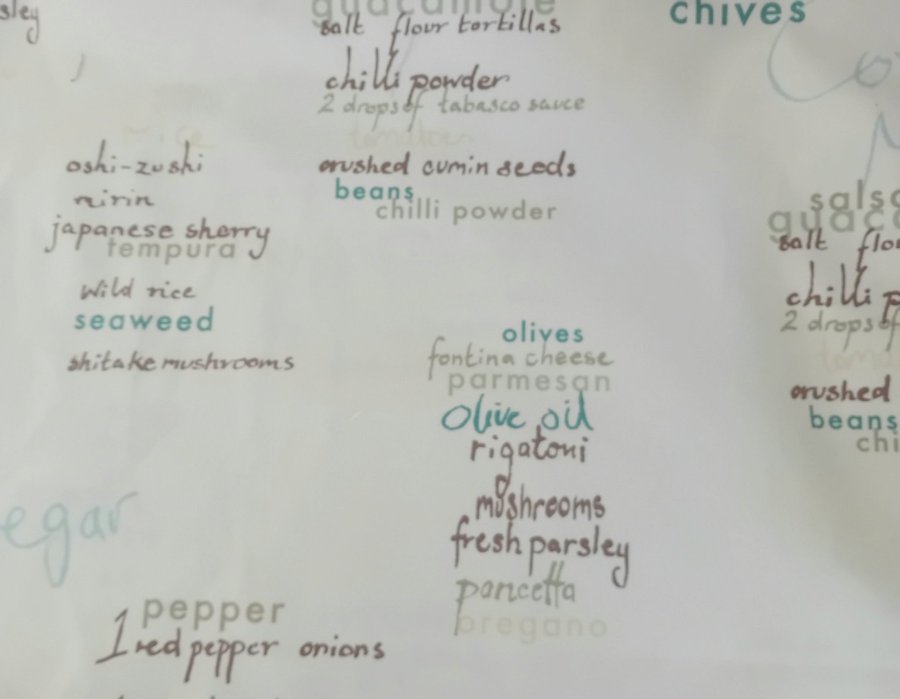 sley
guacamole
salt flour tortillas
chilli powder
2 drops of tabasco sauce
tomatoes
crushed cumin seeds
beans
chilli powder
chives
rice
oshi-zushi
mirin
japanese sherry
tempura
wild rice
seaweed
shitake mushrooms
olives
fontina cheese
parmesan
Olive oil
rigatoni
mushrooms
fresh parsley
pancetta
oregano
egar
pepper
1 red pepper onions
salsa
guaco
salt flo
chilli p
2 drops of
tomat
crushed
beans
chi